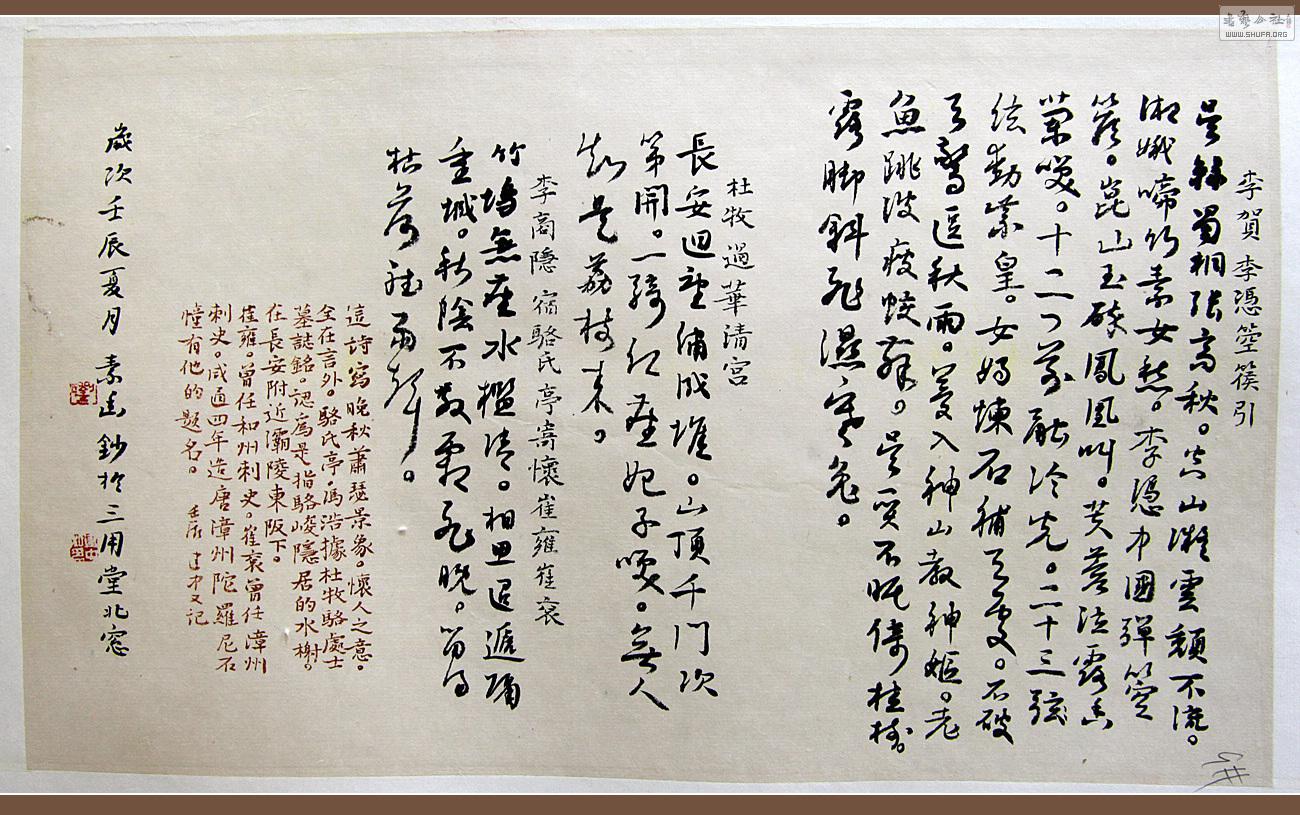 李賀 李憑箜篌引
吳絲蜀桐張高秋。空山凝雲頹不流。
湘娥啼竹素女愁。李憑中國彈箜
篌。崑山玉碎鳳凰叫。芙蓉泣露香
蘭笑。十二門前融冷光。二十三弦
絃動紫皇。女媧煉石補天處。石破
天驚逗秋雨。夢入神山教神嫗。老
魚跳波瘦蛟舞。吳質不眠倚桂樹。
露腳斜飛濕寒兔。
杜牧 過華清宮
長安迴望繡成堆。山頂千門次
第開。一騎紅塵妃子笑。無人
知是荔枝來。
李商隱 宿駱氏亭寄懷崔雍崔袞
竹塢無塵水檻清。相思迢遞隔
重城。秋陰不散霜飛晚。留得
枯荷聽雨聲。
這詩寫晚秋蕭瑟景象。懷人之意。
全在言外。駱氏亭。馮浩據杜牧駱處士
墓誌銘。認爲是指駱峻隱居的水榭。
在長安附近灞陵東阪下。
崔雍。曾任和州刺史。崔袞曾任漳州
刺史。咸通四年造唐漳州陀羅尼石
幢有他的題名。 壬辰 建中又记
歲次壬辰夏月 素面鈔於三用堂北窓
书艺公社
WWW.SHUFA.ORG